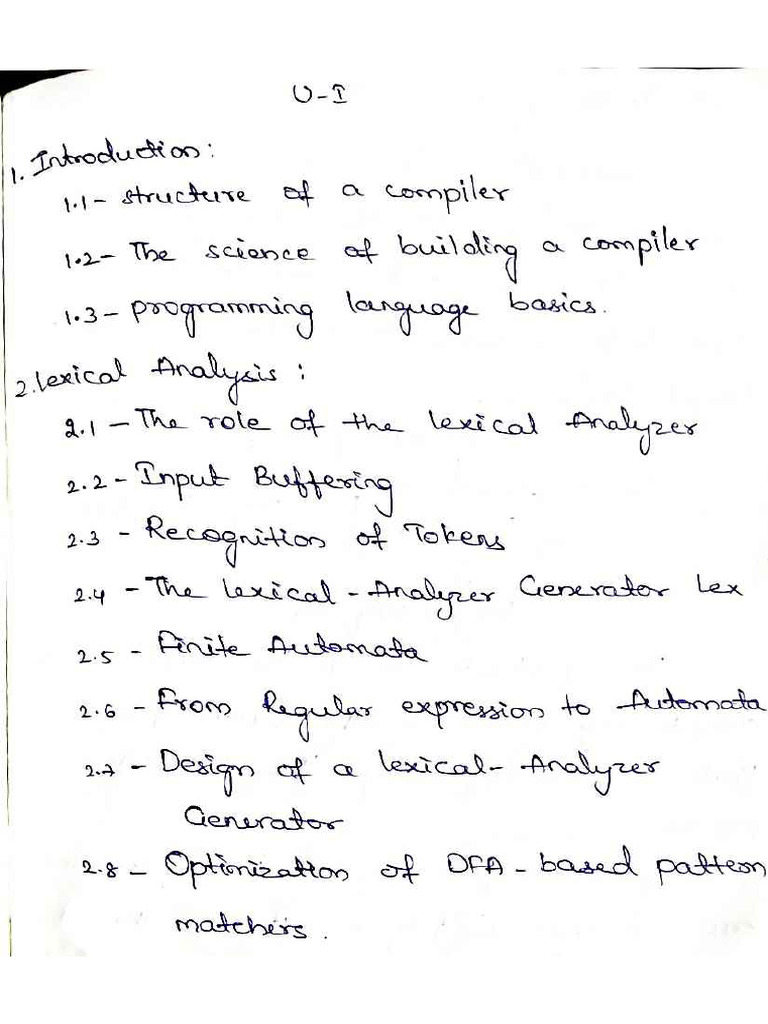 U-I
1. Introduction:
1.1- structure of a compiler
1.2- The science of building a compiler
1.3- programming language basics.
2. Lexical Analysis:
2.1 - The role of the lexical Analyzer
2.2 - Input Buffering
2.3 - Recognition of Tokens
2.4 - The Lexical - Analyzer Generator Lex
2.5 - Finite Automata
2.6 - From Regular expression to Automata
2.7 - Design of a lexical- Analyzer
Generator
2.8 - Optimization of DFA - based pattern
matchers.